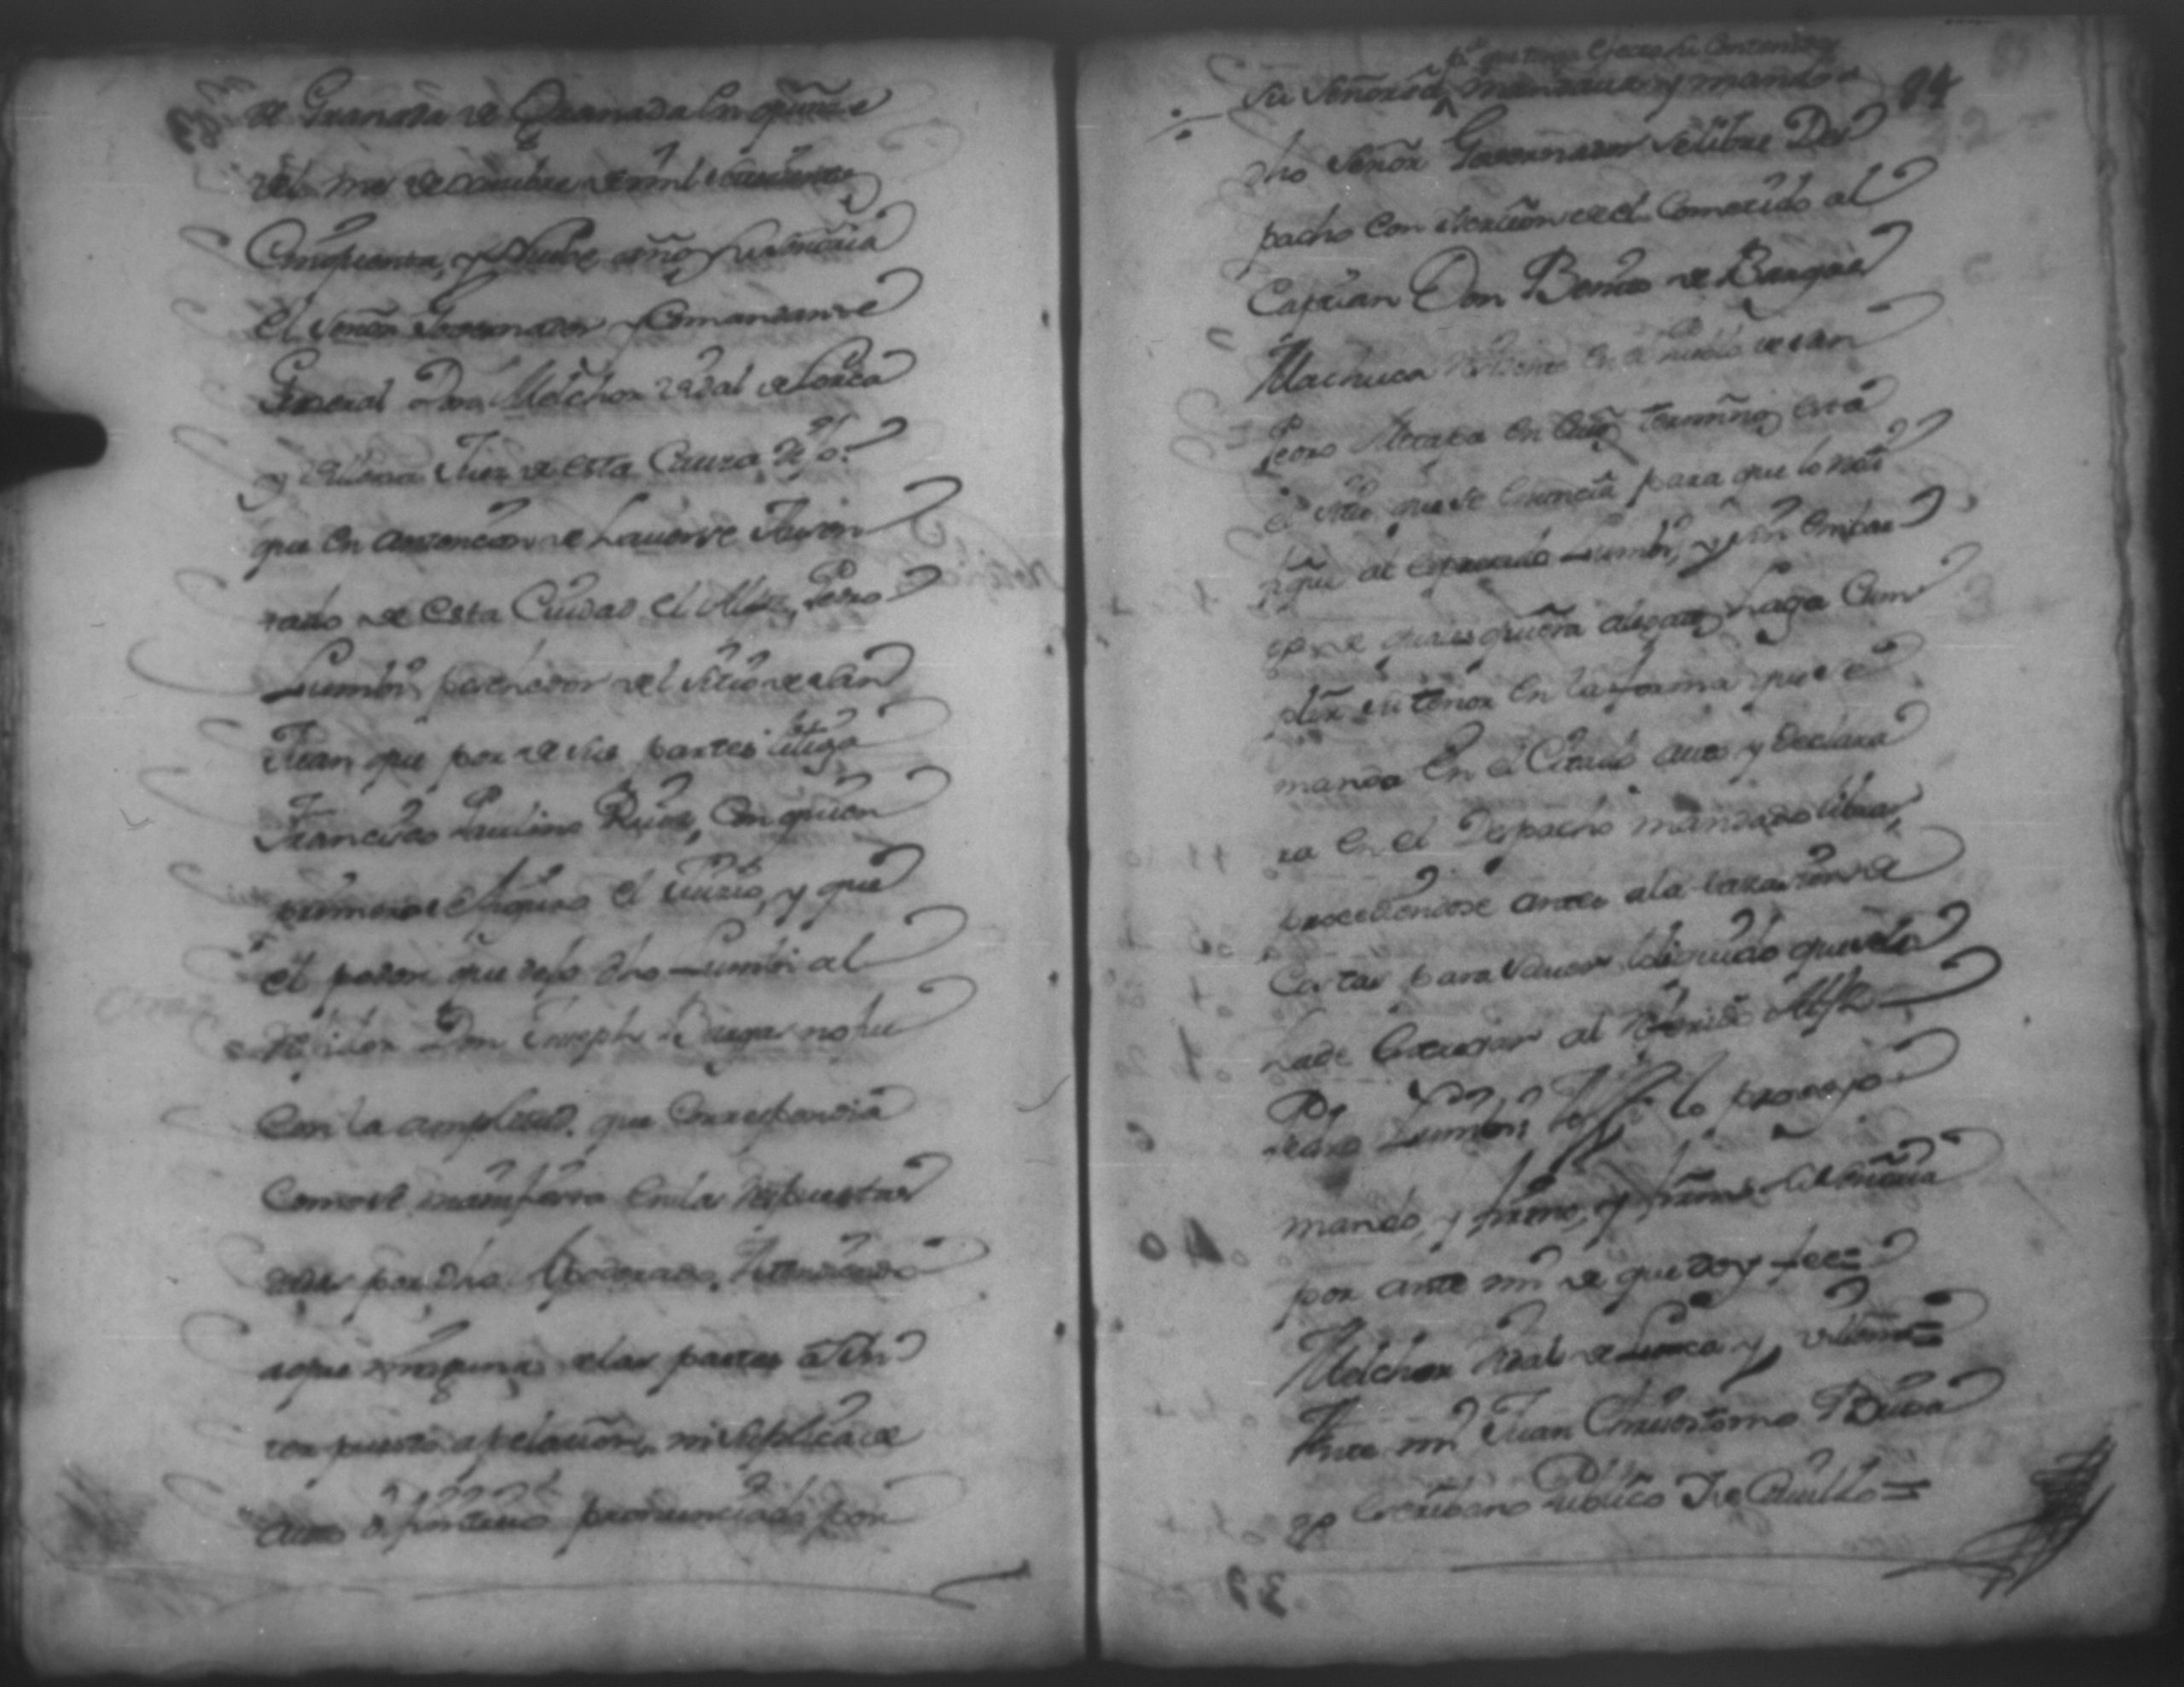 de Granada de Granada en quince
del mes de octubre de mil setecientos
Cinquenta, y Nueve años su señoria
el señor Governador y Comandante
General Don Melchor Vidal de Lorca
y Villena Juez de esta Causa Dijo:
que en atencion de haverse
tado de esta Ciudad el Alfz. Pedro
Lumbi, poseedor del sitio de San
Juan que por de sus partes litiga
Francisco Paulino Ruiz, con quien
primero se siguio el Juizio, y que
el poder que dejo dho Lumbi al
Rejidor Don Joseph Vargas no fue
Con la amplitud que Correspondia
Como se manifiesta en las respuestas
dadas por dho Apoderado, Atendiendo
a que ninguna de las partes a in
terpuesto apelacion, ni suplica de
auto difinitivo pronunciado por
84
pa. que tenga efecto su Contenido
su señoria, mandava y mandó
dho señor Governador se libre Des
pacho con insercion de el Cometido al
Capitan Don Benito de Bargas
Machuca residente en el Pueblo de San
Pedro Metapa en cuio termino esta
el sitio que se enuncia para que lo noti
fique al expresado Lumbi, y sin embar
go de qualesquiera alegato haga Cum
plir su tenor en la forma que se
manda en el Citado auto y declara
ra en el Despacho mandado librar,
procediendose antes a la tazacion de
Costas para saver lo liquido que se le
ha de entregar al referido Alfz.
Pedro Lumbi, lo proveyo
mandó, y firmo, y firma su señoria
por ante mi de que doy fee=
Melchor Vidal de Lorca y Villena=
Ante mi Juan Crisostomo
Escribano Publico de Cavildo=